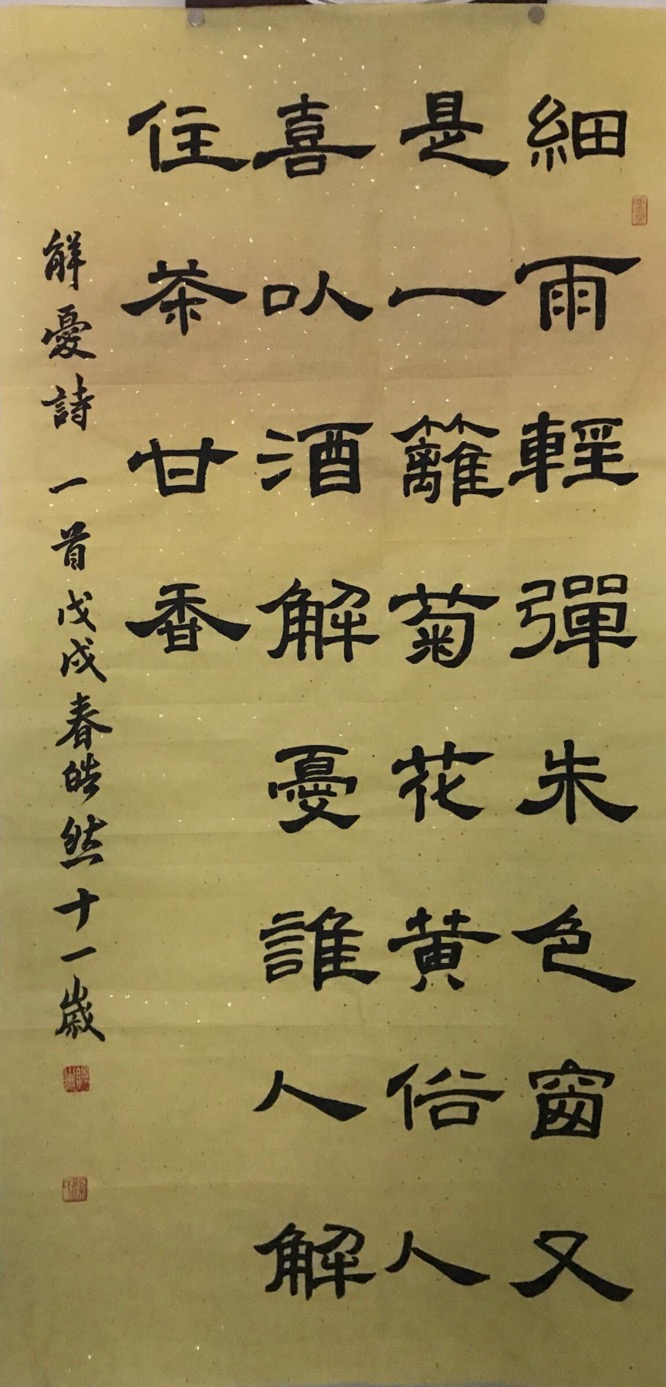 細雨輕彈朱色窗又
是一籬菊花黄俗人
喜㕥酒解憂誰人解
住茶甘香
解憂詩一首戊戌春皓然十一歲